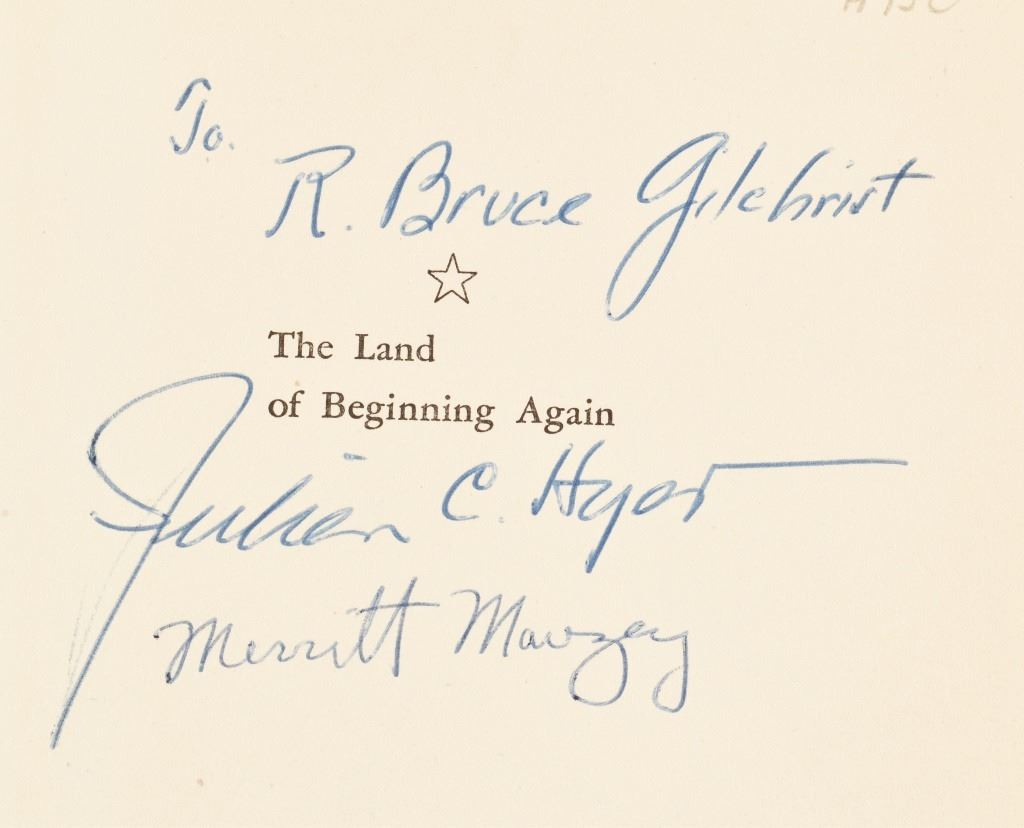 To.
R. Bruce Gilchrist
The Land
of Beginning Again
Julien C. Hyer
Merritt Mauzey